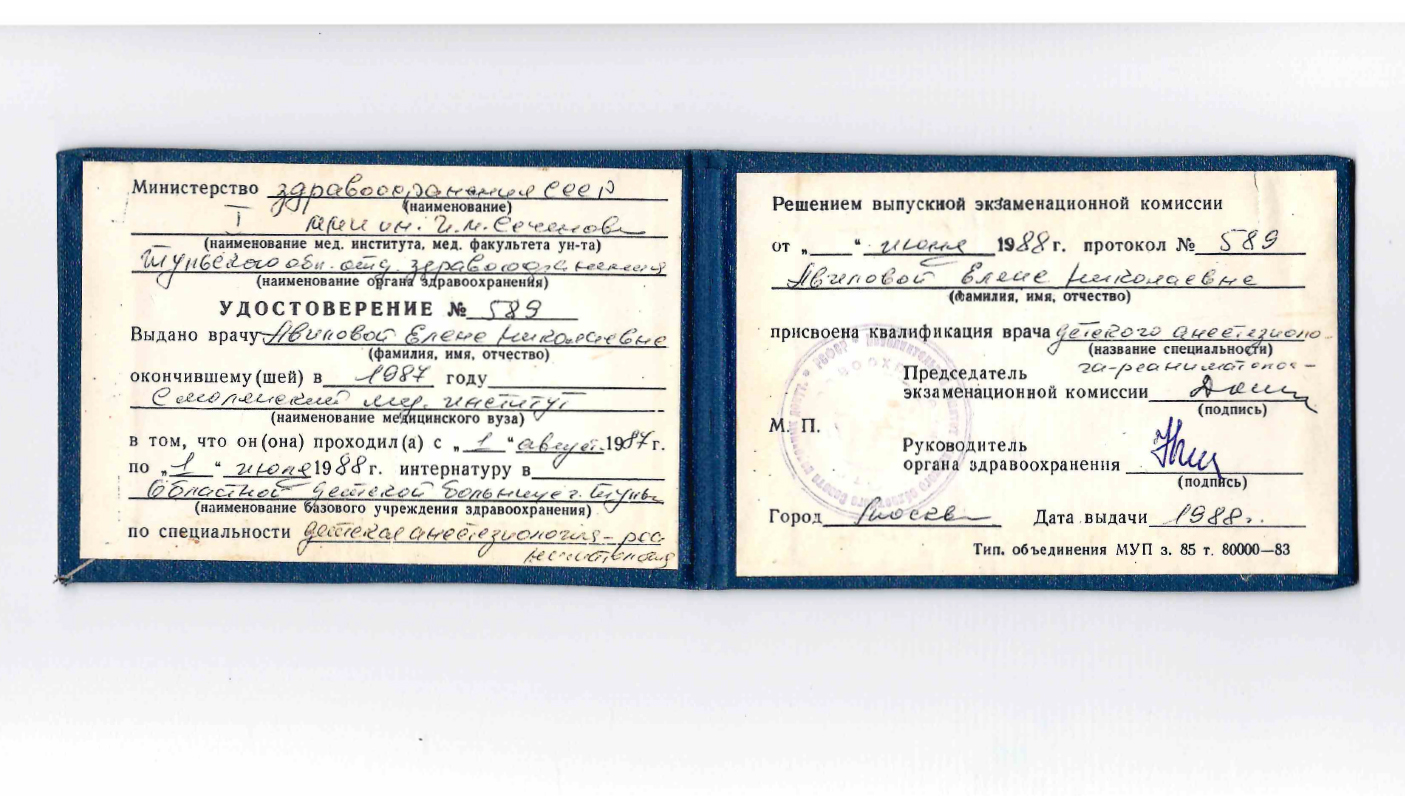 Министерство здравоохранения СССР
(наименование)
I ММИ им. И.М. Сеченова
(наименование мед. института, мед. факультета ун-та)
Тульского обл. отд. здравоохранения
(наименование органа здравоохранения)
УДОСТОВЕРЕНИЕ № 589
Выдано врачу Авиловой Елене Николаевне
(фамилия, имя, отчество)
окончившему(шей) в 1987 году
Смоленский мед. институт
(наименование медицинского вуза)
в том, что он(она) проходил(а) с „1“ август. 1987г.
по „1“ июля 1988г. интернатуру в
Областной детской больнице г. Тулы
(наименование базового учреждения здравоохранения)
по специальности детская анестезиология-реа
ниматология
Решением выпускной экзаменационной комиссии
от „ “ июля 1988г. протокол № 589
Авиловой Елене Николаевне
(фамилия, имя, отчество)
присвоена квалификация врача детского анестезиоло-
(название специальности)
га-реаниматолог-
Председатель
экзаменационной комиссии
(подпись)
М. П.
Руководитель
органа здравоохранения
(подпись)
Город Москва Дата выдачи 1988г.
Тип. объединения МУП з. 85 т. 80000—83